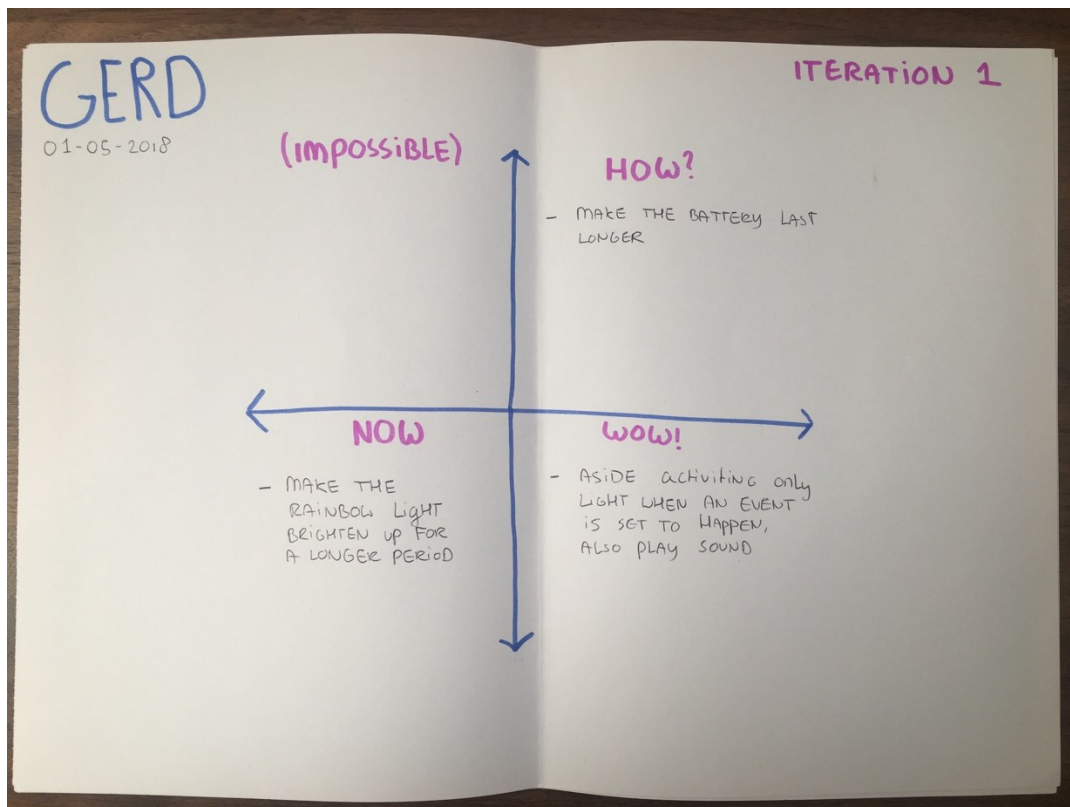 GERD
01-05-2018
ITERATiON 1
(iMPOSSiBLE)
HOW?
- MAKE THE BATTERY LAST
LONGER
NOW
- MAKE THE
RAiNBOW LiGHT
BRiGHTEN UP FOR
A LONGER PERiOD
WOW!
- ASiDE activiting only
LiGHT WHEN AN EVENT
iS SET TO HAPPEN,
ALSO PLAY SOUND